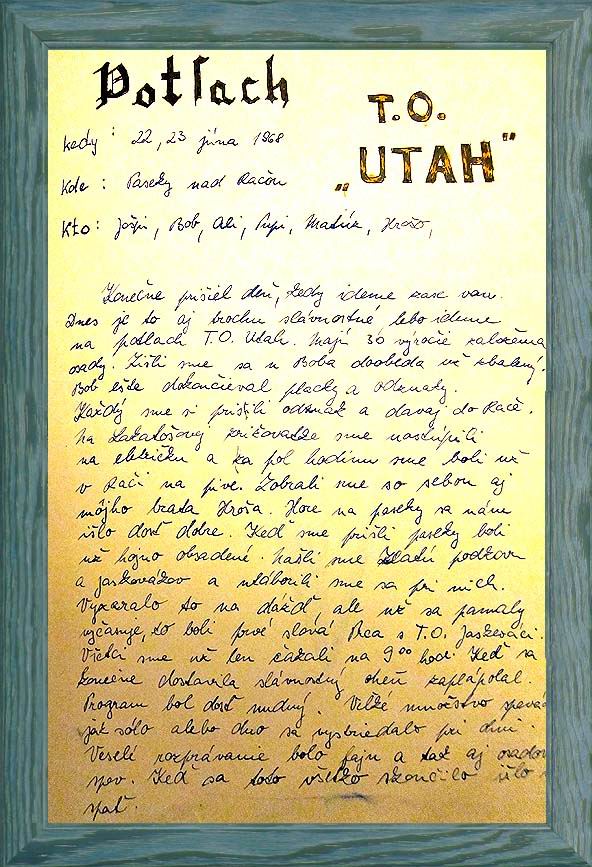 Potlach
T.O.
"UTAH"
kedy: 22, 23 júna 1968
Kde: Paseky nad Račou
Kto: Jožpi, Bob, Ali, Pupi, Matúk, Hrošo,
Konečne prišiel deň, kedy ideme zasc van.
Dnes je to aj trochu slávnostné lebo ideme
na potlach T.O. Utah. Majú 30 výročie založenia
osady. Zišli sme sa u Boba doobeda už zbalený.
Bob ešte dokončieval placky a odznaky.
Každý sme si prišili odznak a davaj do Rače.
Na Lakatošovej križovatke sme nastúpili
na električku a za pol hodinu sme boli už
v Rači na pive. Zobrali sme so sebou aj
môjho brata Hroša. Hore na paseky sa nám
išlo dosť dobre. Keď sme prišli paseky boli
už hojno obsadené. Našli sme Zlatú podkovu
a Jaskovákov a utáborili sme sa pri nich.
Vyzeralo to na dážď ale už sa pamaly
vyčasuje, to boli prvé slová Pca s T.O. Jaskováci.
Všetci sme už len čakali na 9⁰⁰ hod. Keď sa
konečne dostavila slávnostný oheň zaplápolal.
Program bol dosť nudný. Veľké množstvo
jak sólo alebo duo sa vystriedalo pri ohni.
Veselé rozprávanie bolo fajn a tak aj
spev. Keď sa toto všetko skončilo išlo
spať.